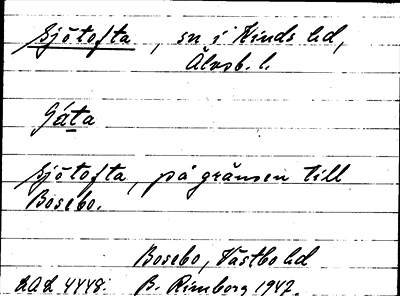 Sjötofta, sn i Kinds hd,
Älvsb. l.
Gáta
Sjötofta, på gränsen till
Bosebo.
Bosebo, Västbo hd
ULMA 4448. B. Rimborg 1942.